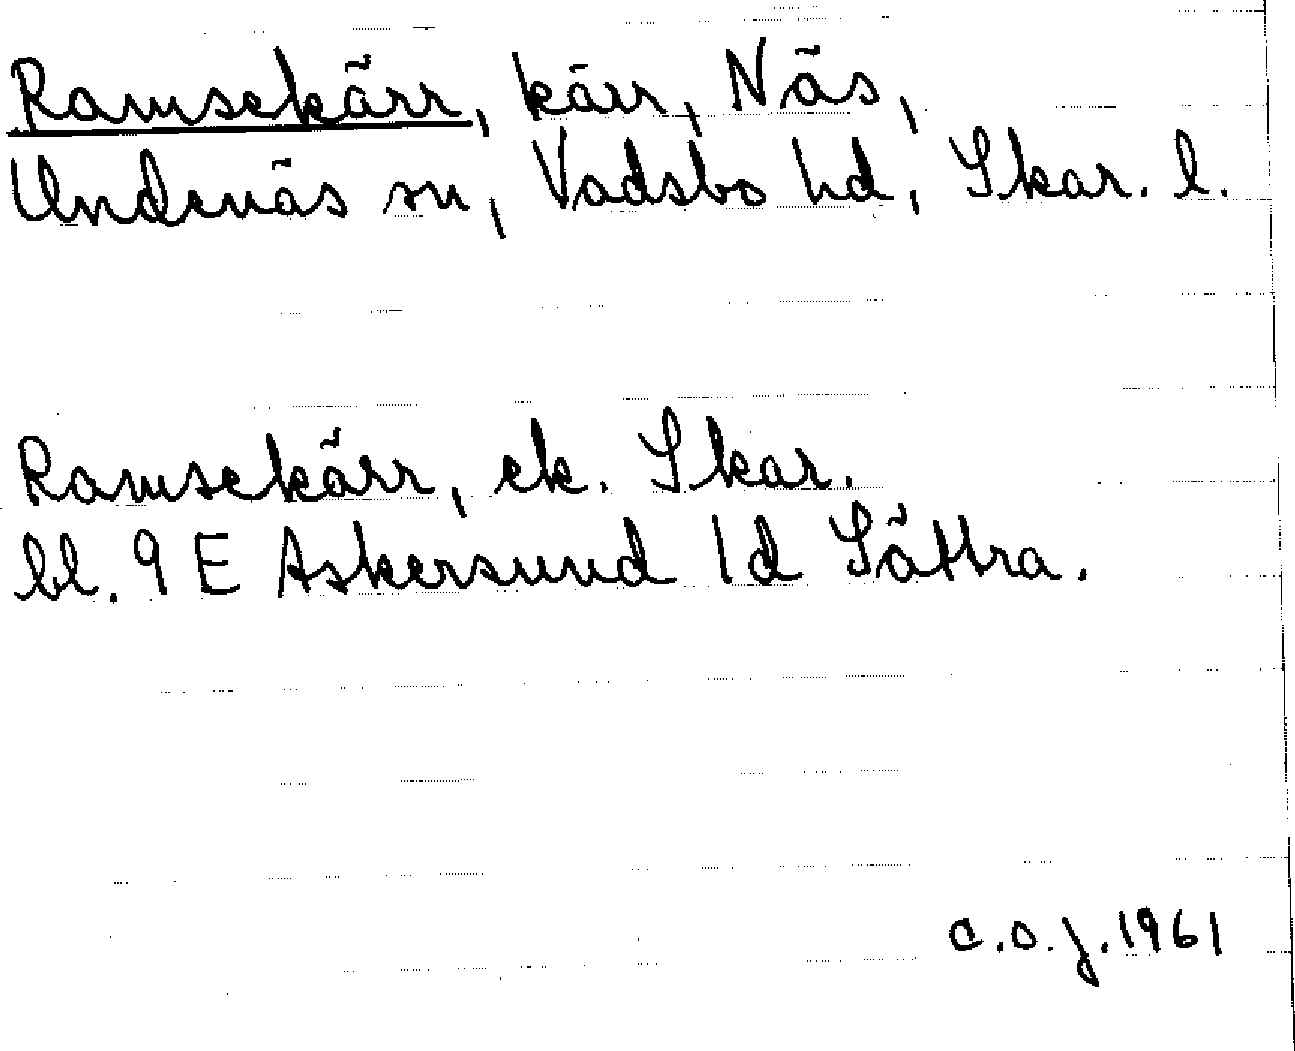 Ramsekärr, kärr, Näs,
Undenäs sn, Vadsbo hd, Skar. l.
Ramsekärr, ek. Skar.
bl. 9 E Askersund 1d Sätra.
C.O.J. 1961